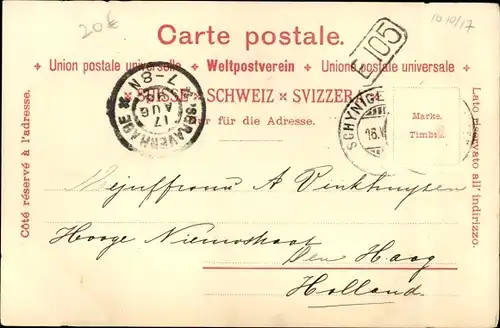 20€
10 10/17
Carte postale.
105
✦ Union postale universelle ✦ Weltpostverein ✦ Unione postale universale ✦
SUISSE × SCHWEIZ × SVIZZERA
Nur für die Adresse.
Côté réservé à l'adresse.
Lato riservato all' indirizzo.
'S GRAVENHAGE
7-8N
17
AUG
SCHYNIGE
16.V
Marke.
Timbre
Mejuffrouw A
Hooge Nieuwstraat
Den Haag
Holland.